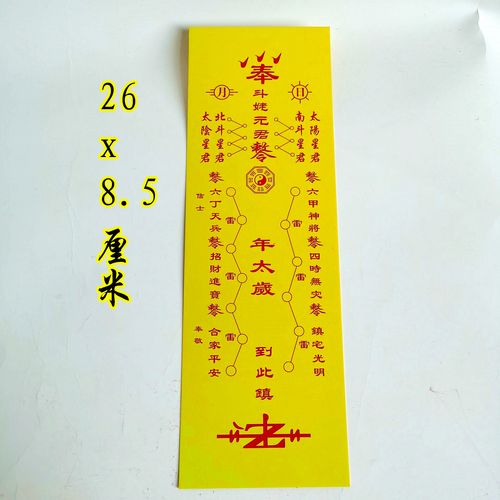 26
x
8.5
厘米
奉
斗姥元君
日
太陽星君
南斗星君
月
北斗星君
太陰星君
六甲神將
四時無灾
鎮宅光明
雷
雷
雷
年太歲
到此鎮
雷
雷
雷
六丁天兵
招財進寶
合家平安
信士
奉敬